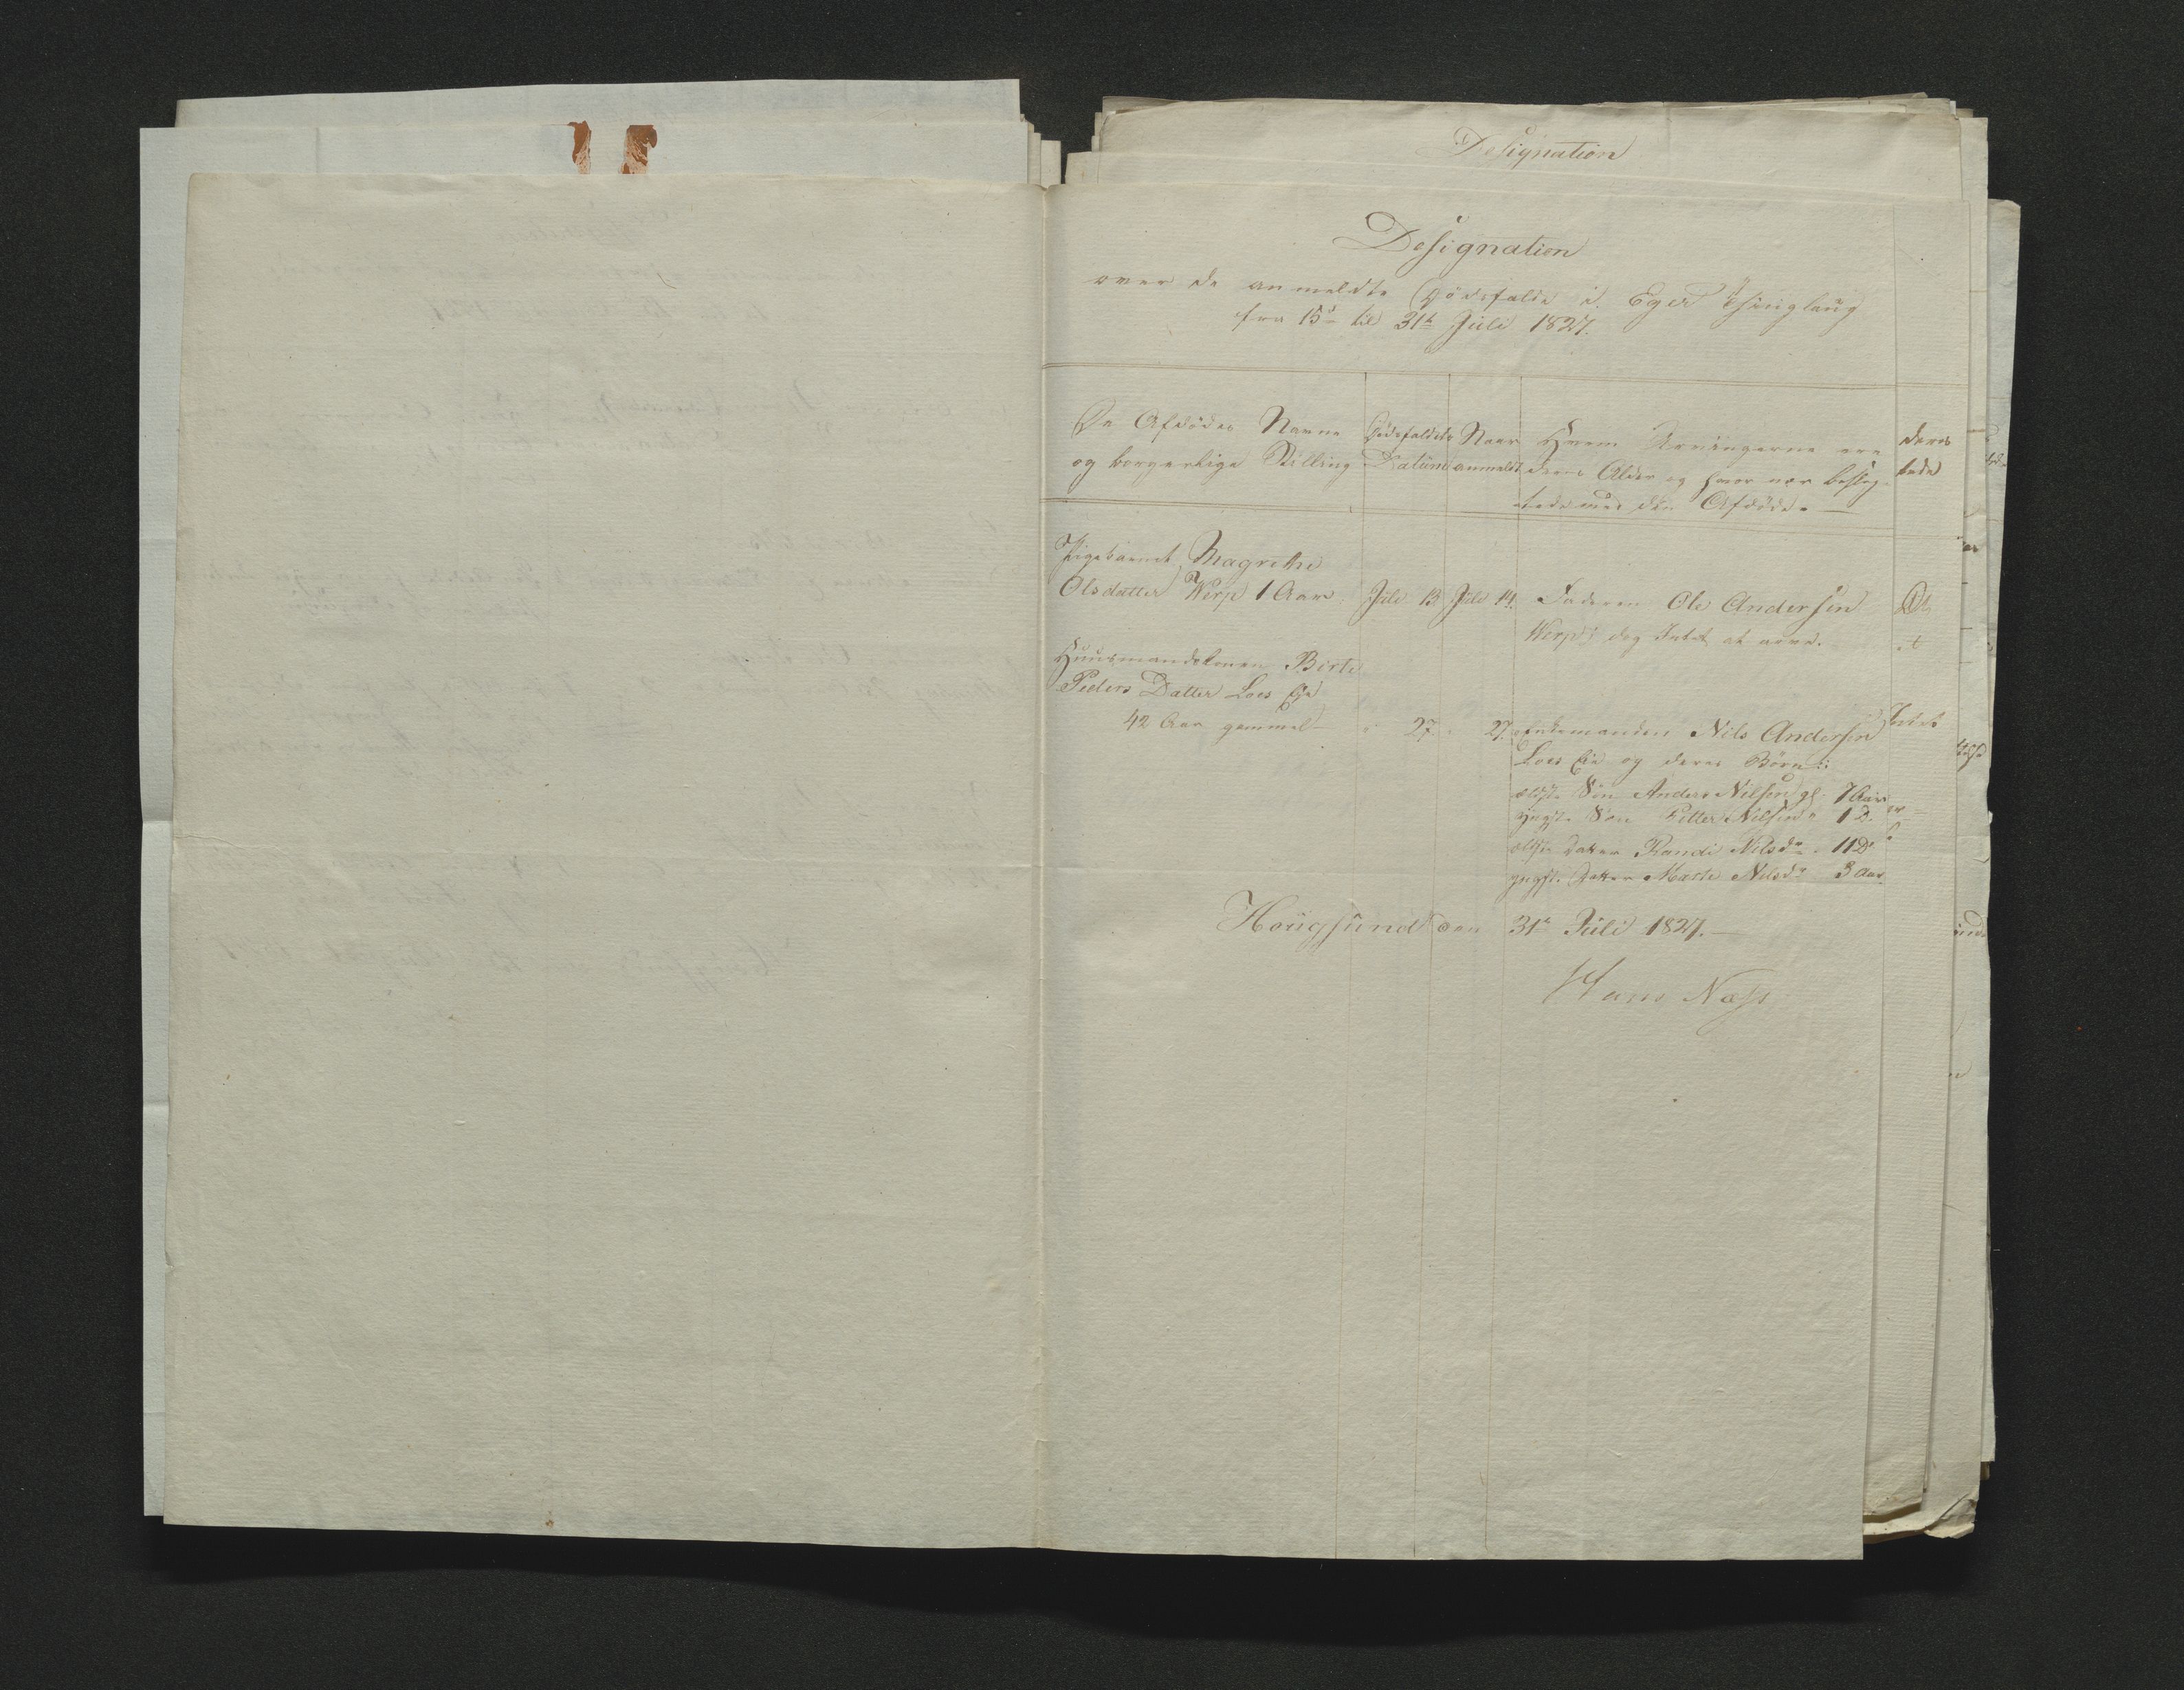 Designation
Designation
over de anmeldte Dödsfalde i Eger Thinglaug
fra 15de til 31te Juli 1827.
De Afdödes Navne
og borgerlige Stilling
Dödsfaldets
Datum
Naar
anmeldt
Hvem Arvingerne ere
deres Alder og hvor nær beslæg-
tede med den Afdöde.
deres
tede
Pigebarnet Magrethe
Olsdatter Werp 1 Aar Juli 13 Juli 14. Faderen Ole Andersen
Werp; dog Intet at arve.
Huusmandskonen Birte
Peders Datter Loes Eie
42 Aar gammel 27. 27. Enkemanden Nils Andersen
Loes Eie og deres Börn:
ældste Sön Anders Nilsen gl. 7 Aar
yngste Sön Petter Nilsen " 1 D.
ældste Datter Randi Nilsdr " 11 D.
yngste Datter Marte Nilsdr 3 Aar.
Intet
Hougsund den 31te Juli 1827.
Hans Næss